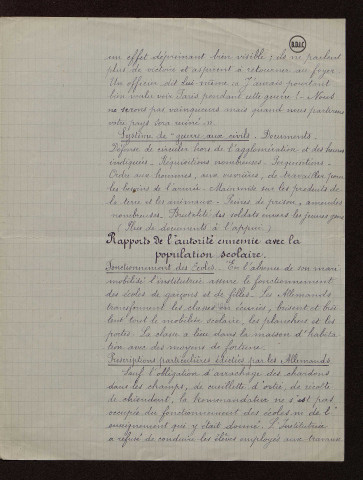 B.D.I.C
un effet déprimant bien visible ; ils ne parlent
plus de victoire et aspirent à retourner au foyer.
Un officier dit lui-même « J'aurais pourtant
bien voulu voir Paris pendant cette guerre ! – Nous
ne serons pas vainqueurs mais quand nous partirons
votre pays sera ruiné ».
Système de guerre aux civils – Documents.
Défense de circuler hors de l'agglomération et des heures
indiquées. Réquisitions nombreuses. Perquisitions.
Ordre aux hommes, aux ouvrières, de travailler pour
les besoins de l'armée – Main mise sur les produits de
la terre et les animaux – Peines de prison, amendes
nombreuses. Brutalité des soldats envers les jeunes gens
(Plus de documents à l'appui)
Rapports de l'autorité ennemie avec la
population scolaire.
Fonctionnement des écoles – En l'absence de son mari
mobilisé l'institutrice assure le fonctionnement
des écoles de garçons et de filles. Les Allemands
transforment les classes en écuries, brisent et brû-
lent tout le mobilier scolaire, les planchers et les
portes. La classe a lieu dans la maison d'habita
tion avec des moyens de fortune.
Prescriptions particulières édictées par les Allemands
Sauf l'obligation d'arrachage des chardons
dans les champs, de cueillette d'ortie, de récolte
de chiendent, la kommandantur ne s'est pas
occupée du fonctionnement des écoles ni de l'
enseignement qui y était donné. L'Institutrice
a refusé de conduire les élèves employés aux travaux